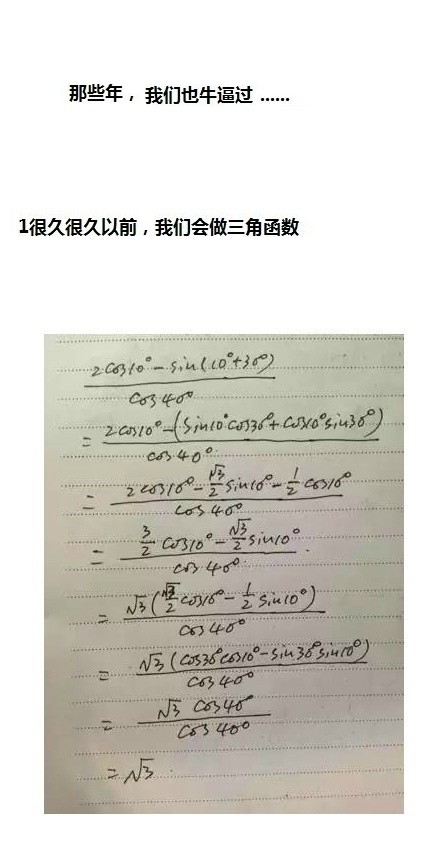 那些年，我们也牛逼过 ......
1很久很久以前，我们会做三角函数
(2cos10° - sin(10°+30°)) / cos40°
= (2cos10° - (sin10°cos30° + cos10°sin30°)) / cos40°
= (2cos10° - √3/2 sin10° - 1/2 cos10°) / cos40°
= (3/2 cos10° - √3/2 sin10°) / cos40°
= √3(√3/2 cos10° - 1/2 sin10°) / cos40°
= √3(cos30°cos10° - sin30°sin10°) / cos40°
= √3 cos40° / cos40°
= √3